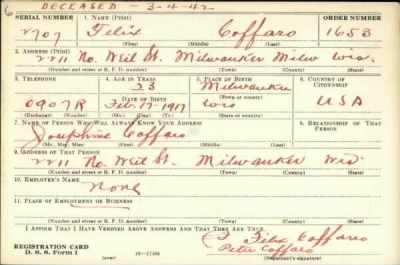 DECEASED - 3-4-42
SERIAL NUMBER 1. NAME (Print) ORDER NUMBER
2707 Felix Coffaro 1653
(First) (Middle) (Last)
2. ADDRESS (Print)
2211 No. Weil St. Milwaukee Milw Wis.
(Number and street or R. F. D. number) (Town) (County) (State)
3. TELEPHONE 4. AGE IN YEARS 5. PLACE OF BIRTH 6. COUNTRY OF CITIZENSHIP
23 Milwaukee
0907R DATE OF BIRTH Feb. 17-1917 Wis USA
(Exchange) (Number) (Mo.) (Day) (Yr.) (State or country)
7. NAME OF PERSON WHO WILL ALWAYS KNOW YOUR ADDRESS 8. RELATIONSHIP OF THAT PERSON
Josephine Coffaro
(Mr., Mrs., Miss) (First) (Middle) (Last)
9. ADDRESS OF THAT PERSON
2211 No. Weil St. Milwaukee Wis
(Number and street or R. F. D. number) (Town) (County) (State)
10. EMPLOYER'S NAME
None
11. PLACE OF EMPLOYMENT OR BUSINESS
(Number and street or R. F. D. number) (Town) (County) (State)
I AFFIRM THAT I HAVE VERIFIED ABOVE ANSWERS AND THAT THEY ARE TRUE.
Felix Coffaro
Peter Coffaro
REGISTRATION CARD
D. S. S. Form 1
(Registrant's signature)